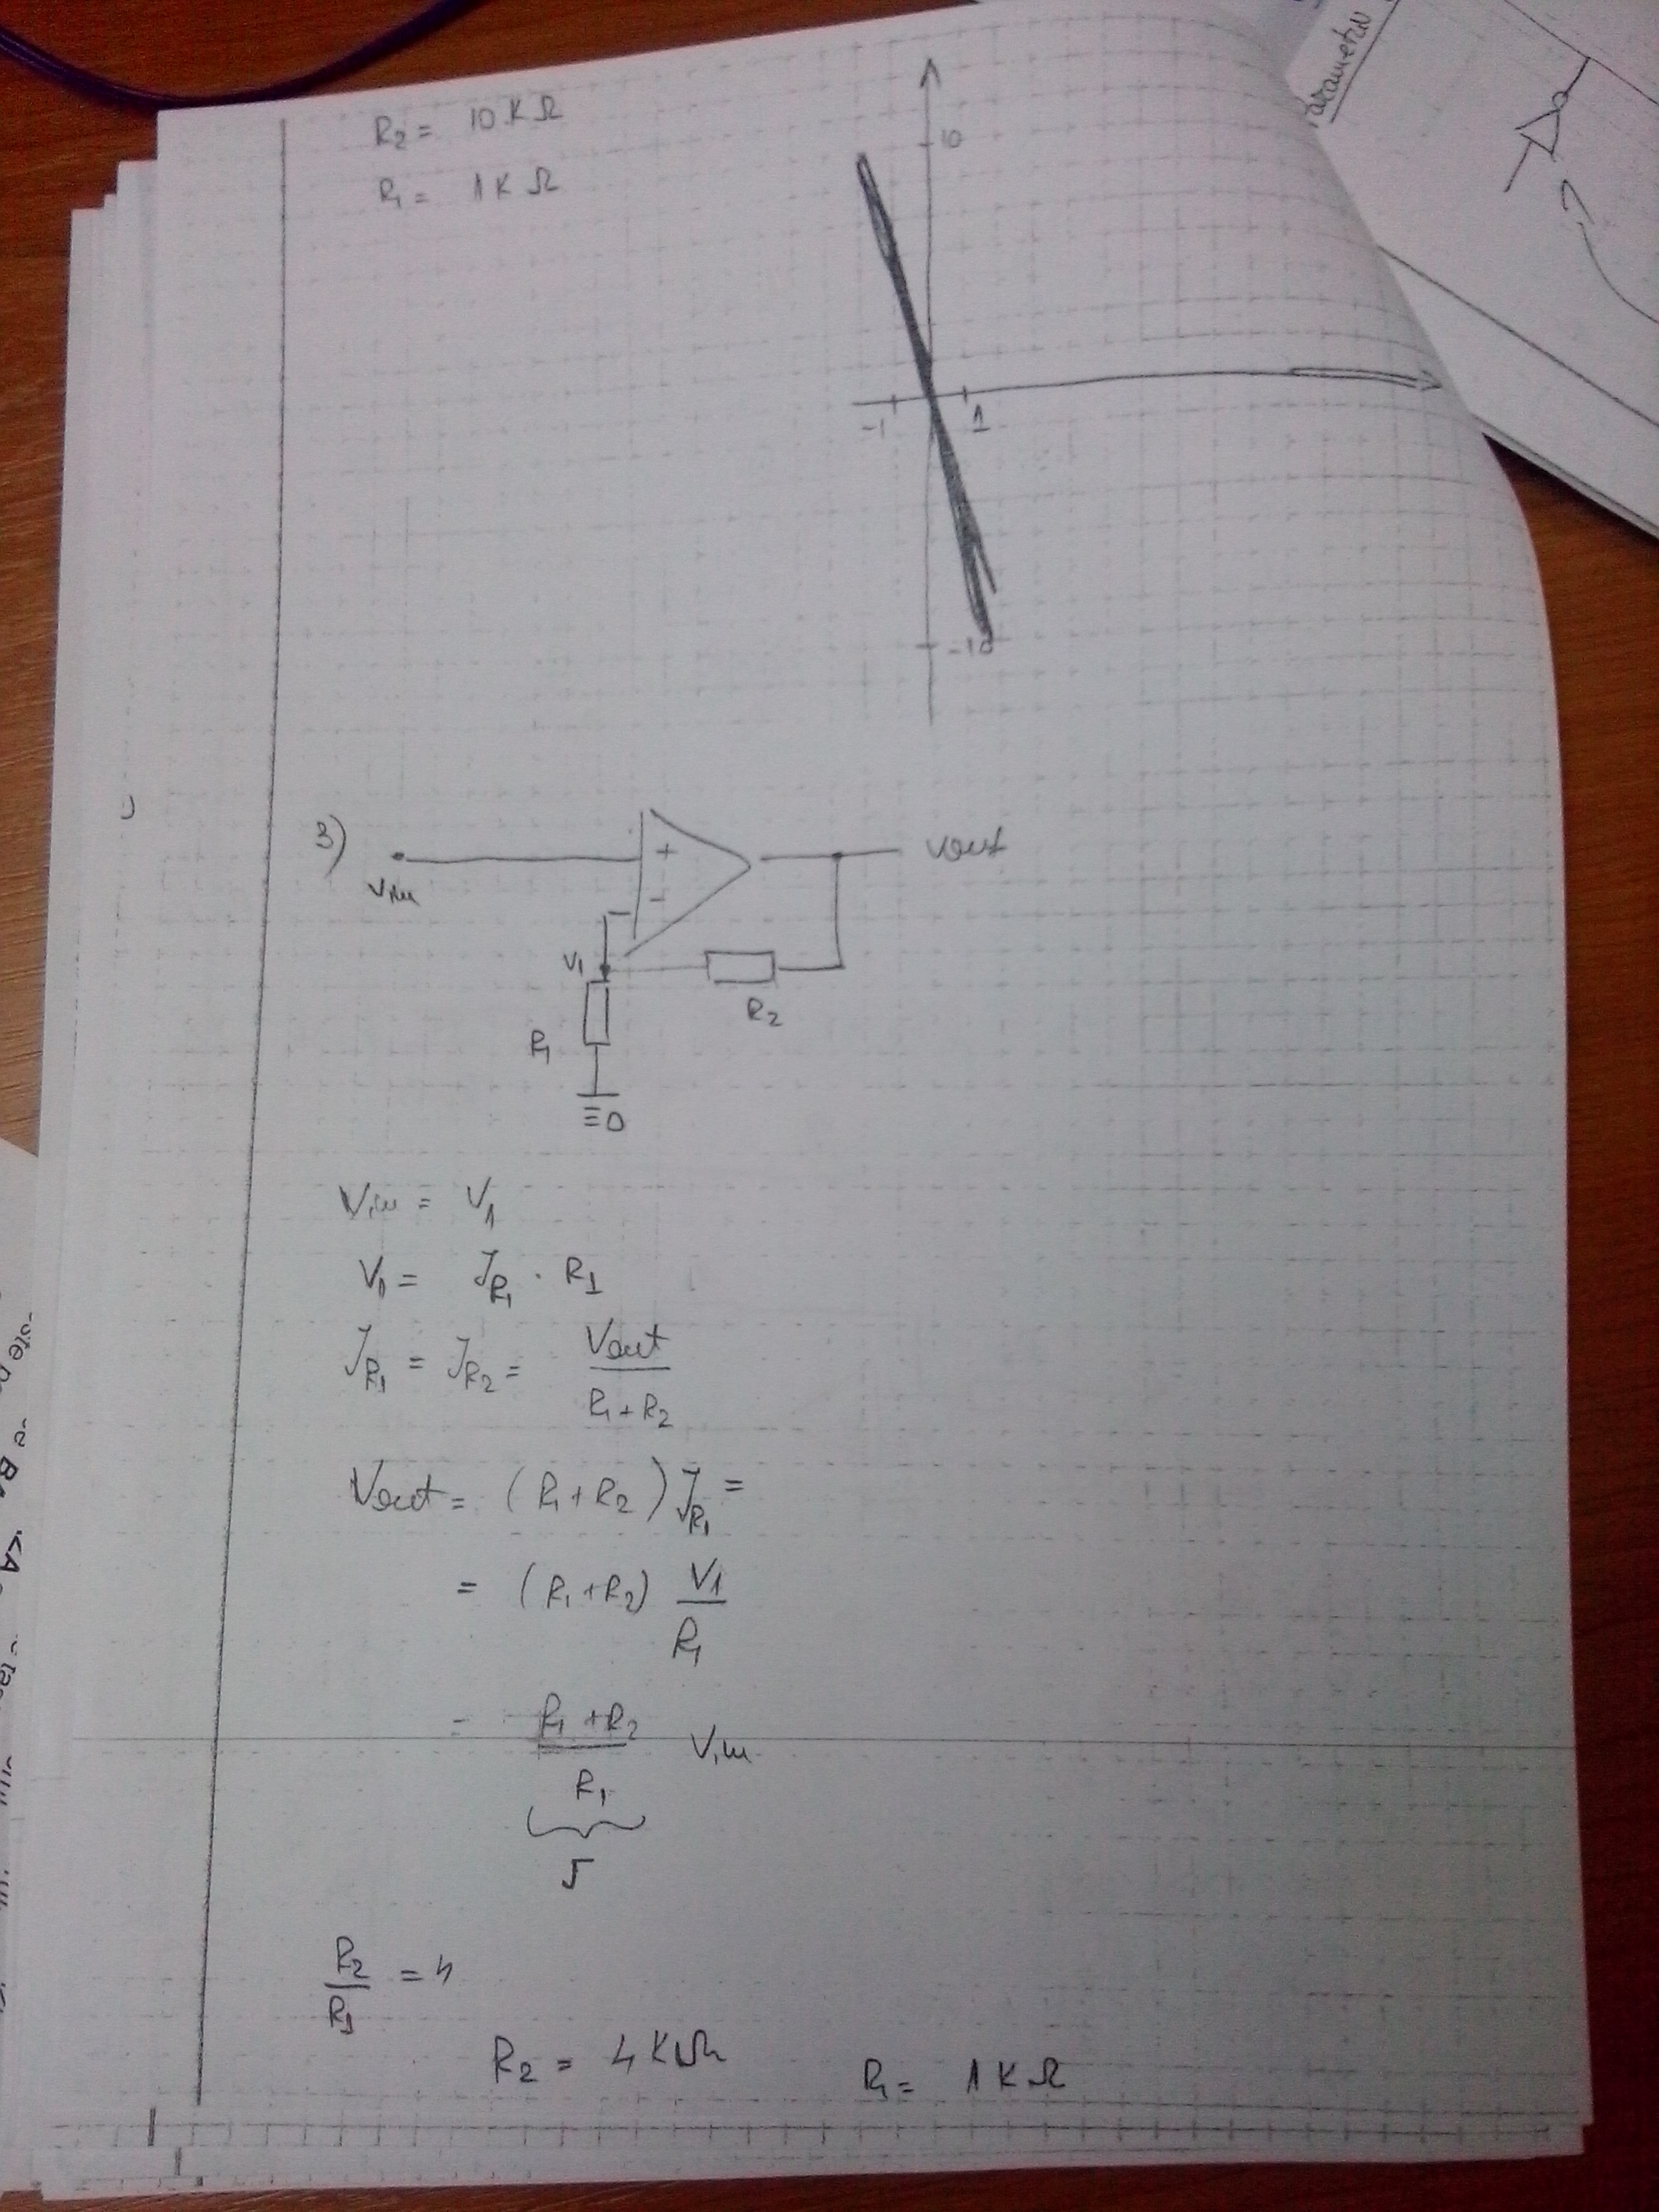 R2 = 10 KΩ
R1 = 1 K Ω
10
-1 1
-10
Parametru
?
3)
Vin
+
-
Vout
V1
R2
R1
≡0
Vin = V1
V1 = IR1 · R1
IR1 = IR2 = Vout / R1+R2
Vout = (R1+R2) IR1 =
= (R1+R2) V1 / R1
= R1+R2 / R1 Vin
5
R2 / R1 = 4
R2 = 4 KΩ R1 = 1 K Ω